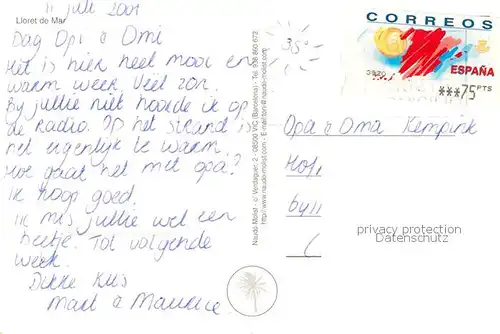 11 juli 2001
Lloret de Mar
Dag Opi & Omi
Het is hier heel mooi en
warm weer. Veel zon.
By jullie niet hoorde ik op
de radio. Op het strand is
het eigenlijk te warm.
Hoe gaat het met opa?
Ik hoop goed.
Ik mis jullie wel een
beetje. Tot volgende
week.
Dikke kus
& Maurice
Naudó Molist - c/ Verdaguer, 2 - 08500 VIC (Barcelona) - Tel. 938 860 672
35°
CORREOS
ESPAÑA
***75 PTS
Opa & Oma Kempink
privacy protection
Datenschutz